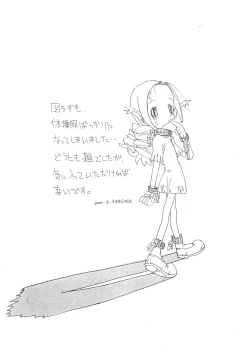 図らずも
体操服ばっかりに
なってしまいました…
どうにも雑でしたが、
気に入っていただければ
幸いです。
2000. 5